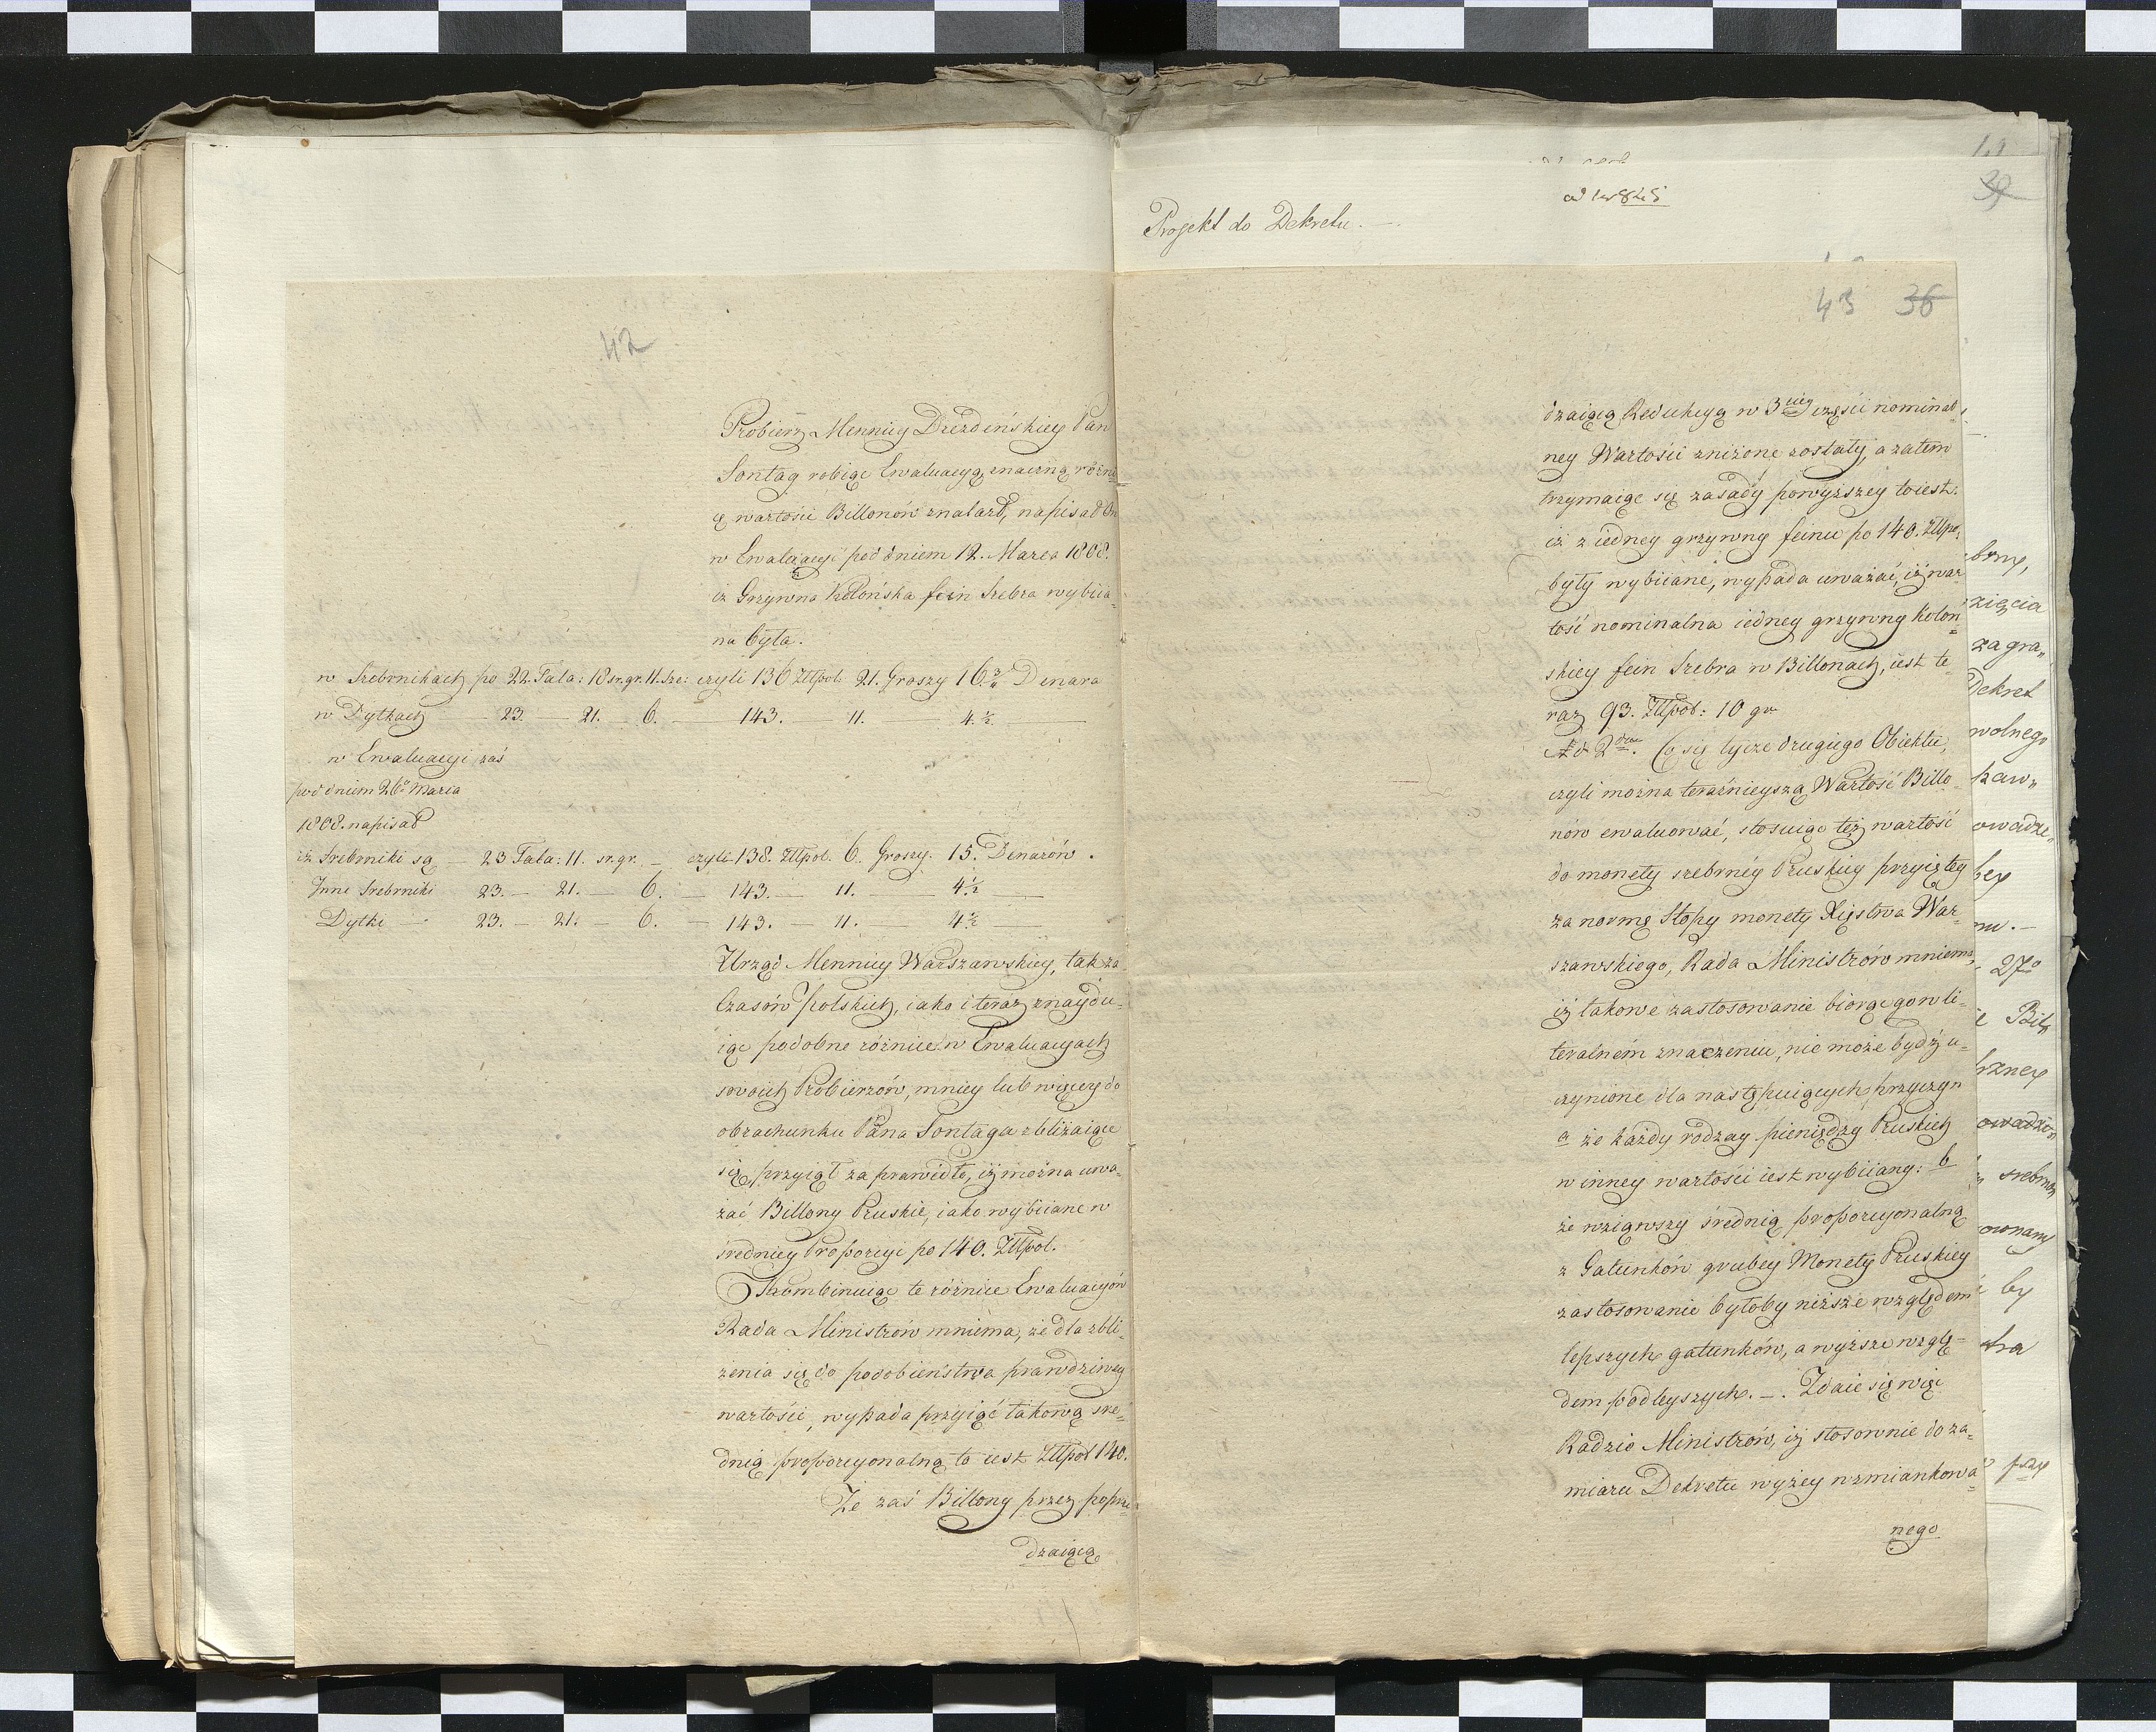 42
Probierz Mennicy Drezdeńskiey Pan
Sontag robiąc Ewaluacyą, znaczną różni-
cę wartości Billonów znalazł, napisał On
w Ewaluacyi pod dniem 12. Marca 1808.
iż Grzywna Kolońska fein Srebra wybiia-
na była.
w Srebrnikach po 22. Tala: 18 sr.gr. 11. Sze: czyli 136 Złłpol. 21. Groszy 16. Denara
w Dytkach 23. — 21. — 6. — 143. — 11. — 4.½
w Ewaluacyi zaś
pod dniem 26º Maria
1808. napisał
iż Srebrniki są — 23 Tala: 11. sr.gr. — czyli 138. Złłpol. 6. Groszy. 15. Denarów.
Inne Srebrniki 23. — 21. — 6. — 143. — 11. — 4½
Dytki — 23. — 21. — 6. — 143. — 11. — 4½
Urząd Mennicy Warszawskiey, tak za
Czasów Polskich, iako i teraz znaydu-
iąc podobne różnice w Ewaluacyach
swoich Probierzów, mniey lub więcey do
obrachunku Pana Sontaga zbliżaiące
się, przyiął za prawidło, iż można uwa-
żać Billony Pruskie, iako wybiiane w
średniey Proporcyi po 140. Złłpol.
Skombinuiąc te różnice Ewaluacyów
Rada Ministrów mniema, że dla zbli-
żenia się do podobieństwa prawdziwey
wartości, wypada przyiąć takową śre-
dnią proporcyonalną to iest Złłpol 140.
Że zaś Billony przez poprze-
dzaiącą
Projekt do Dekretu. —
39
43 36
dzaiącą Redukcyą w 3ciey części nominal-
ney Wartości zniżone zostały, a zatem
trzymaiąc się zasady powyższey toiest:
iż z iedney grzywny feinu po 140. Złłpo.
były wybiiane, wypada uważać, iż war-
tość nominalna iedney grzywny Koloń-
skiey fein Srebra w Billonach, iest te-
raz 93. Złłpol: 10 gr
Ad 2dum. Co się tycze drugiego Obiektu,
czyli można teraźnieyszą Wartość Billo-
nów ewaluować, stosuiąc też wartość
do monety srebrnéy Pruskiey przyiętey
za normę Stopy monety Xięstwa War-
szawskiego, Rada Ministrów mniema,
iż takowe zastosowanie biorąc go w li-
teralném znaczeniu, nie może bydź u-
czynione dla następuiących przyczyn
a że każdy rodzay pieniędzy Pruskich
w inney wartości iest wybiiany: b
że wziąwszy średnią proporcyonalną
z Gatunków grubey Monety Pruskiey
zastosowanie byłoby niższe względem
lepszych gatunków, a wyższe wzglę-
dem podleyszych. —. Zdaie się więc
Radzie Ministrów, iż stosownie do za-
miaru Dekretu wyżey wzmiankowa-
nego
zięcia
za gra„
Dekret
wolnego
27º
by